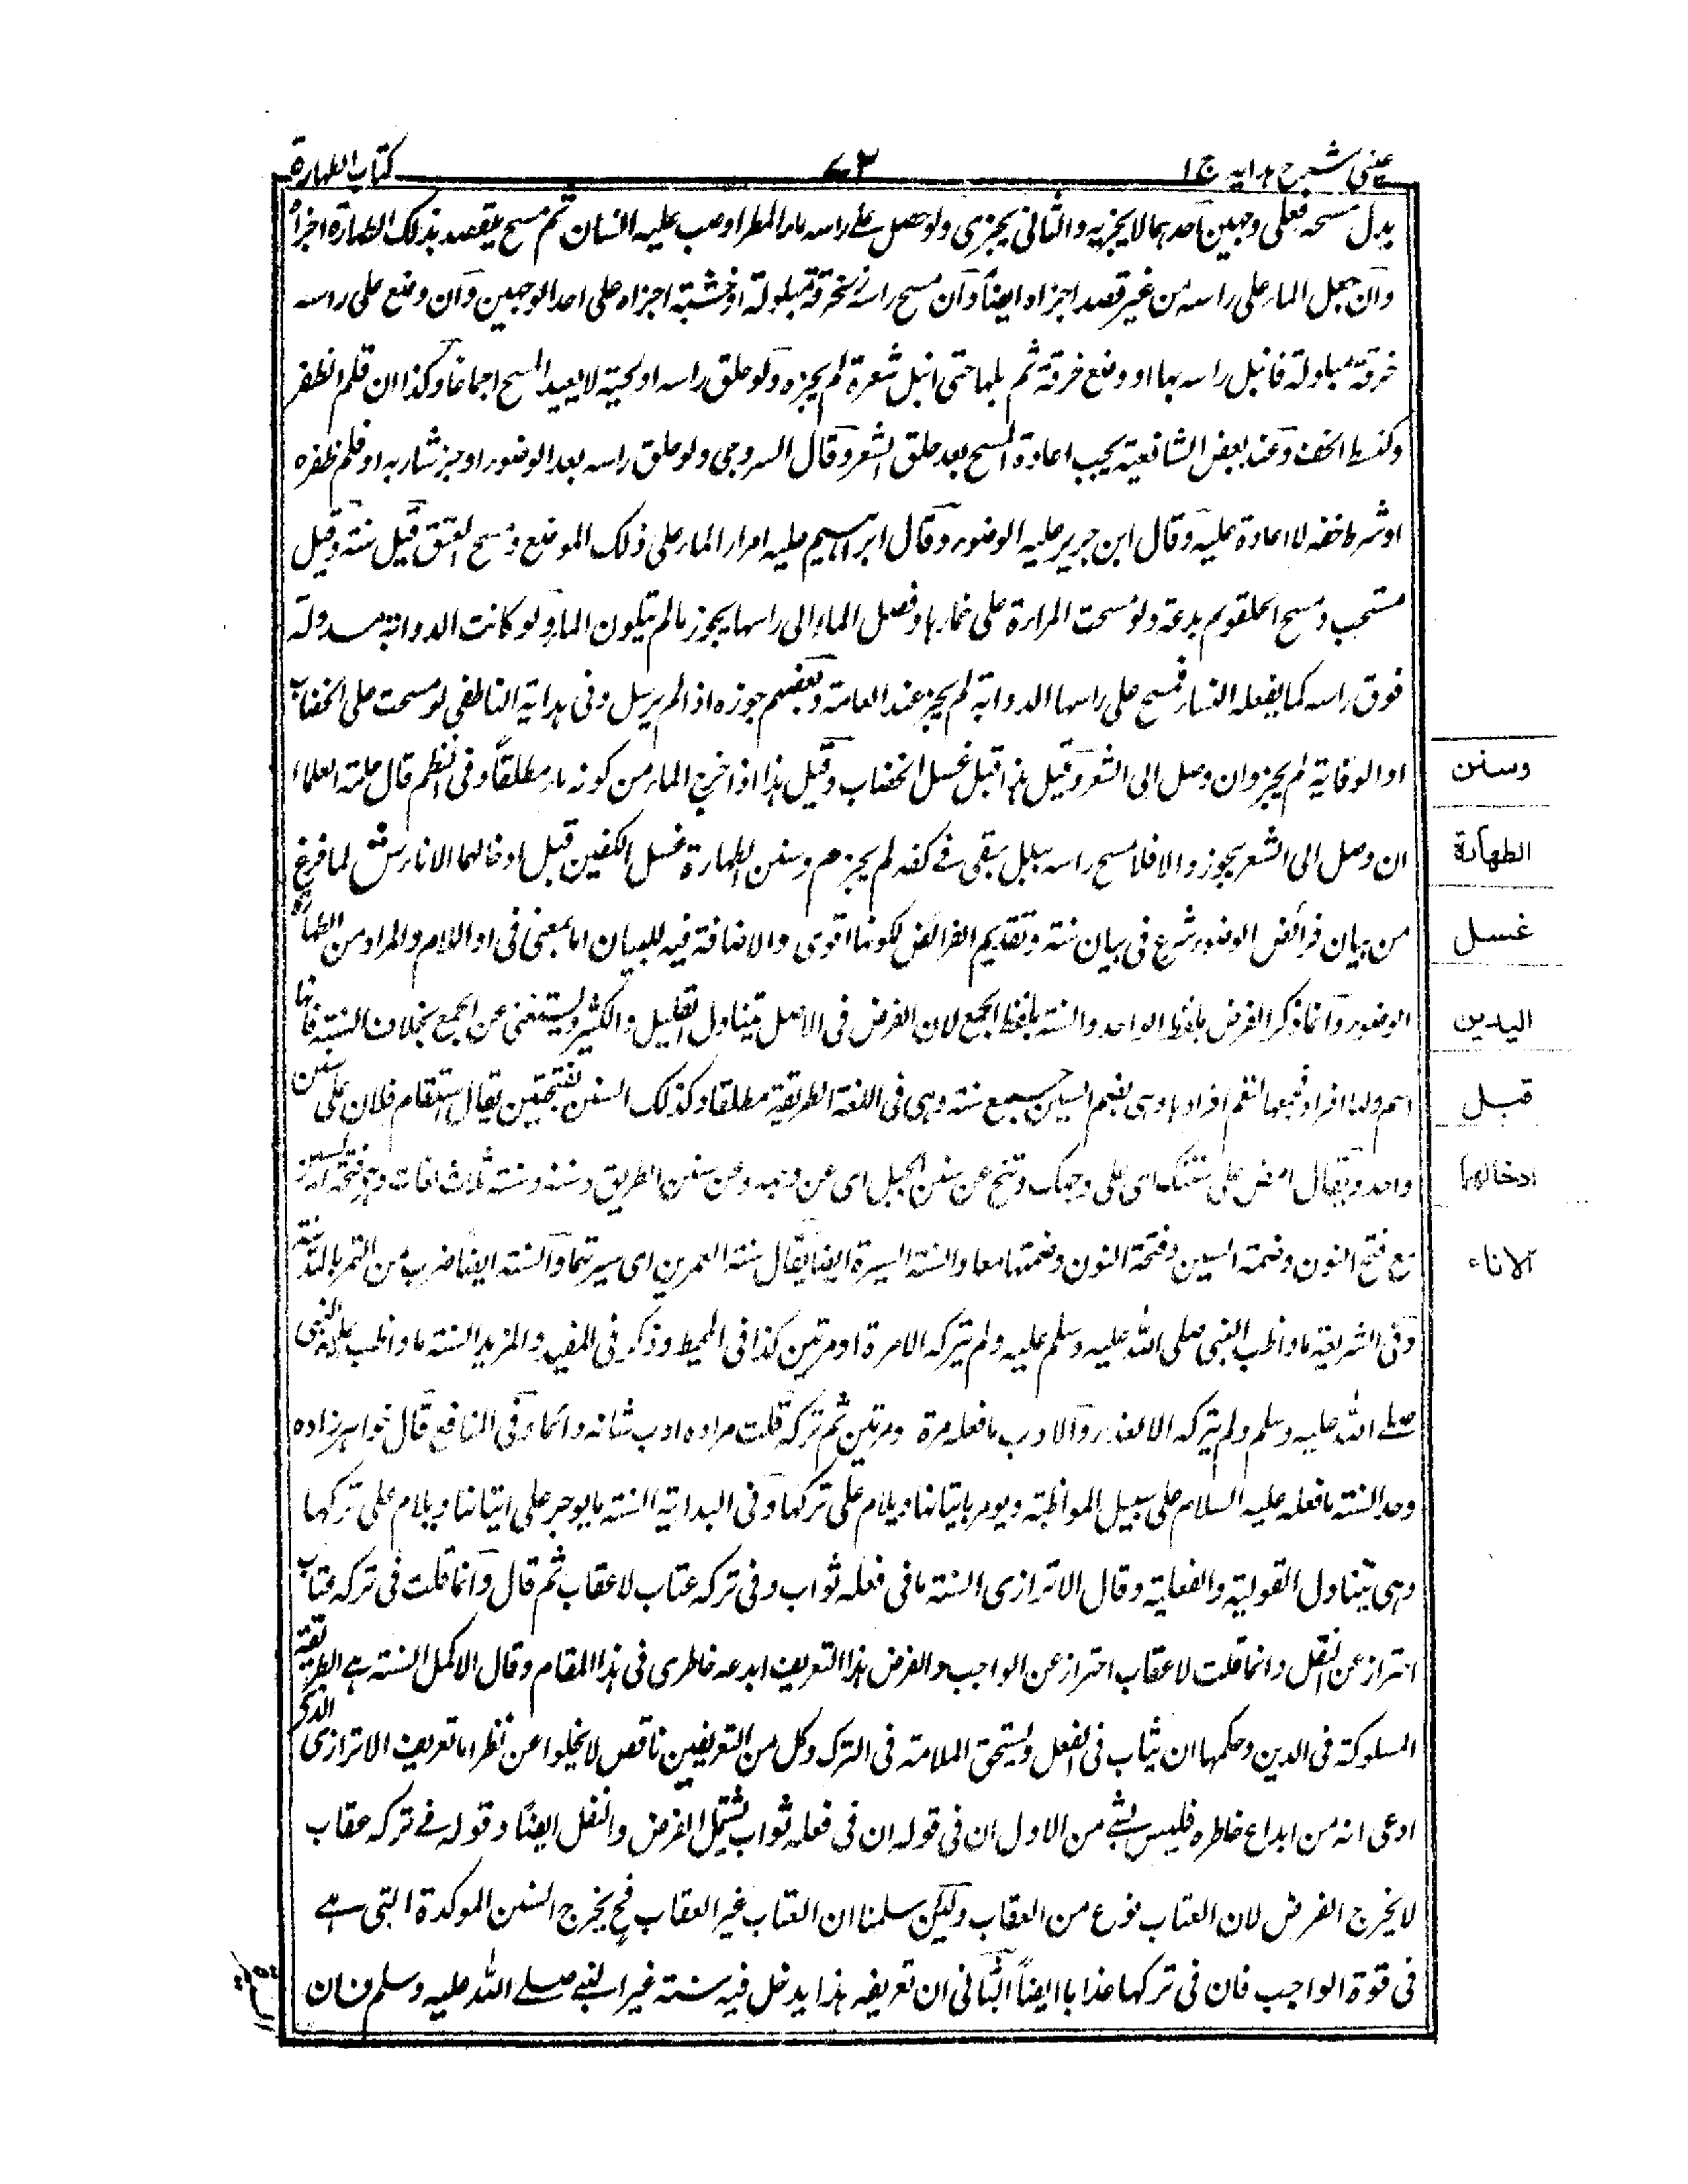 عینی شرح ہدایہ ج ۱
۷۳
کتاب الطہارة
بدل مسحه فعلی وجہین احدہما لا یجزیہ والثانی یجزی ولو حصل علی راسہ ماء المطر او صب علیہ انسان ثم مسح یقصد بذلک الطہارة اجزأ
وان جعل الماء علی راسہ من غیر قصد اجزاہ ایضاً وان مسح راسہ بخرقة مبلولة او خشبة اجزاہ علی احد الوجہین وان وضع علی راسہ
خرقة مبلولة فابتل راسہ بہا او وضع خرقة ثم بلہا حتی ابتل شعرہ لم یجزہ ولو حلق راسہ او لحیتہ لا یعید المسح اجماعاً وکذا ان قلم الظفر
وکشط الخف وعند بعض الشافعیة یجب اعادة المسح بعد حلق الشعر وقال السروجی ولو حلق راسہ بعد الوضوء او جز شاربہ او قلم ظفرہ
او شرط خفہ لا اعادة علیہ وقال ابن جریر علیہ الوضوء وقال ابراہیم علیہ امرار الماء علی ذلک الموضع ومسح العنق قیل سنة وقیل
مستحب ومسح الحلقوم بدعة ولو مسحت المراة علی خمارہا وصل الماء الی راسہا یجوز ما لم یتلون الماء ولو کانت الدوابة مسدولة
فوق راسہ کما یفعلہ النساء فمسح علی راسہا الدوابة لم یجز عند العامة وبعضہم جوزہ اذا لم یرسل وفی ہدایة الناطفی لو مسحت علی الخضاب
او الوقایة لم یجز وان وصل الی الشعر وقیل ہذا قبل غسل الخضاب وقیل ہذا اذا خرج الماء من کونہ ماء مطلقاً وفی النظم قال عامة العلماء
ان وصل الی الشعر یجوز والا فلا مسح راسہ ببلل بقی فی کفہ لم یجز م وسنن الطہارة غسل الکفین قبل ادخالہما الاناء ش لما فرغ
من بیان فرائض الوضوء شرع فی بیان سننہ وتقدیم الفرائض لکونہا اقوی والاضافة فیہ للبیان اما بمعنی فی او اللام والمراد من الطہارة
الوضوء وانما ذکر الفرض بلفظ الواحد والسنة بلفظ الجمع لان الفرض فی الاصل یتناول القلیل والکثیر ویستغنی عن الجمع بخلاف السنة فانہا
اسم ولہا افراد فجمعہا لتعم افرادہا وہی بضم السین جمع سنة وہی فی اللغة الطریقة مطلقا وکذلک السنن بفتحتین یقال استقام فلان علی سنن
واحد ویقال امض علی سننک ای علی وجہک وتنح عن سنن الجبل ای عن وجہہ وعن سنن الطریق وسننہ وسننہ ثلاث لغات وہی فتحة السین
مع فتح النون وضمة السین وفتحة النون وضمتہا معا والسنة السیرة ایضا یقال سنة العمرین ای سیرتہما والسنة ایضا ضرب من التمر بالمدینة
وفی الشریعة ما واظب النبی صلی اللہ علیہ وسلم علیہ ولم یترکہ الا مرة او مرتین کذا فی المحیط وذکر فی المفید والمزید السنة ما واظب علیہ النبی
صلے اللہ علیہ وسلم ولم یترکہ الا لعذر والادب ما فعلہ مرة ومرتین ثم ترکہ قلت مرادہ ادب شانہ دائما وفی المنافع قال خواہر زادہ
وحد السنة ما فعلہ علیہ السلام علی سبیل المواظبة ویومر باتیانہا ویلام علی ترکہا وفی البدایة السنة ما یوجر علی اتیانہا ویلام علی ترکہا
وہی یتناول القولیة والفعلیة وقال الاترازی السنة ما فی فعلہ ثواب وفی ترکہ عتاب لا عقاب ثم قال وانما قلت فی ترکہ عتاب
احتراز عن النفل وانما قلت لا عقاب احتراز عن الواجب والفرض ہذا التعریف ابدعہ خاطری فی ہذا المقام وقال الاکمل السنة ہی الطریقة
المسلوکة فی الدین وحکمہا ان یثاب فی الفعل ویستحق الملامة فی الترک وکل من التعریفین ناقص لا یخلوا عن نظر اما تعریف الاترازی الذی
ادعی انہ من ابداع خاطرہ فلیس بشیء من الاول ان فی قولہ ان فی فعلہ ثواب یشتمل الفرض والنفل ایضاً وقولہ فے ترکہ عقاب
لا یخرج الفرض لان العتاب نوع من العقاب ولکن سلمنا ان العتاب غیر العقاب فح یخرج السنن الموکدة التی ہے
فی قوة الواجب فان فی ترکہا عذابا ایضاً الثانی ان تعریفہ ہذا یدخل فیہ سنة غیر النبے صلے اللہ علیہ وسلم فان
وسنن
الطهارة
غسل
اليدين
قبل
ادخالهما
الاناء